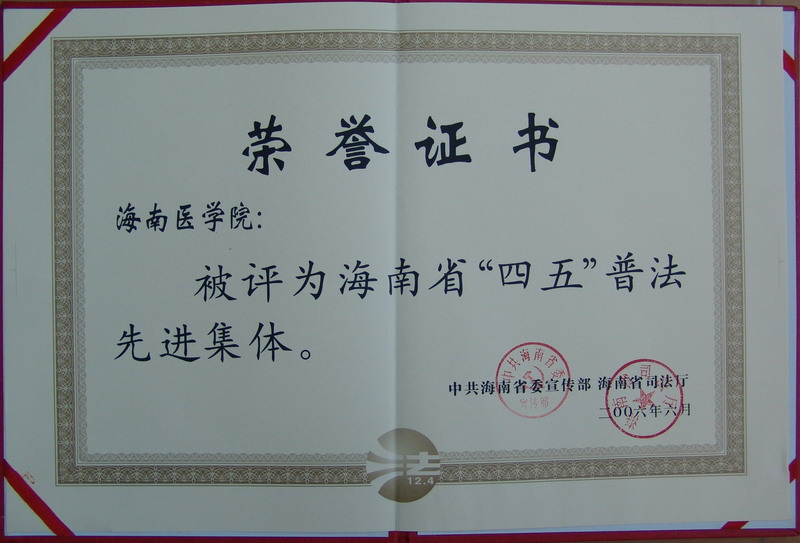 荣誉证书
海南医学院：
被评为海南省“四五”普法
先进集体。
中共海南省委宣传部 海南省司法厅
二00六年六月
中共海南省委
宣传部
海南省司法厅
法
12.4